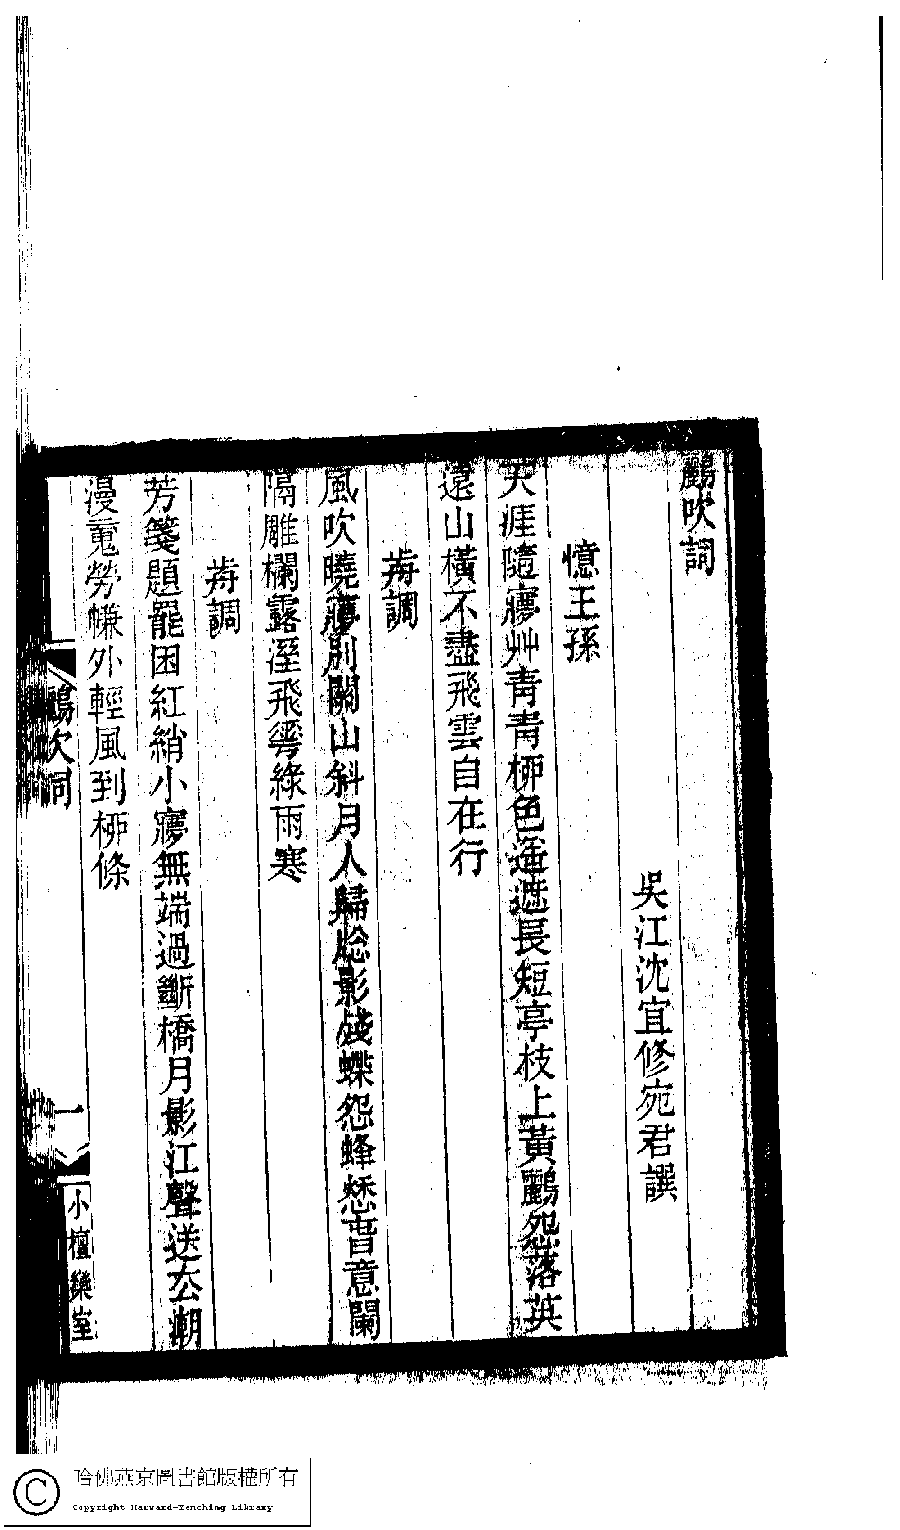 鸝吹詞
吳江沈宜修宛君譔
憶王孫
天涯隨㝱艸青青桺色遙遮長短亭枝上黃鸝怨落英
遠山橫不盡飛雲自在行
歬調
風吹曉㝱別關山斜月人歸牕影殘蝶怨蜂愁春意闌
隔雕欄露溼飛蕚綠雨寒
歬調
芳箋題罷困紅綃小㝱無端過斷橋月影江聲送厺潮
漫䰟勞㡘外輕風到桺條
鸝吹詞
一
小檀欒室
哈佛燕京圖書館版權所有
Copyright Harvard-Yenching Library